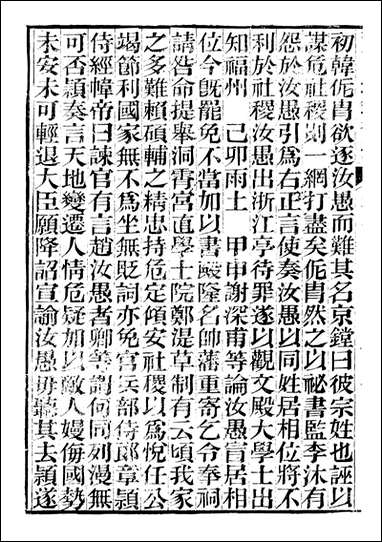 初韓侂胄欲逐汝愚而難其名京鏜曰彼宗姓也誣以
謀危社稷則一網打盡矣侂胄然之以祕書監李沐有
怨於汝愚引爲右正言使奏汝愚以同姓居相位將不
利於社稷汝愚出浙江亭待罪遂以觀文殿大學士出
知福州　己卯雨土　甲申謝深甫等論汝愚冒居相
位今既罷免不當加以書殿隆名帥藩重寄乞令奉祠
請咎命提舉洞霄宮直學士院鄭湜草制有云頃我家
之多難賴碩輔之精忠持危定傾安社稷以爲悅任公
竭節利國家無不爲坐無貶詞亦免官兵部侍郎章穎
侍經幃帝曰諫官有言趙汝愚者卿等謂何同列漫無
可否穎奏言天地變遷人情危疑加以敵人嫚侮國勢
未安未可輕退大臣願降詔宣諭汝愚毋聽其去穎遂